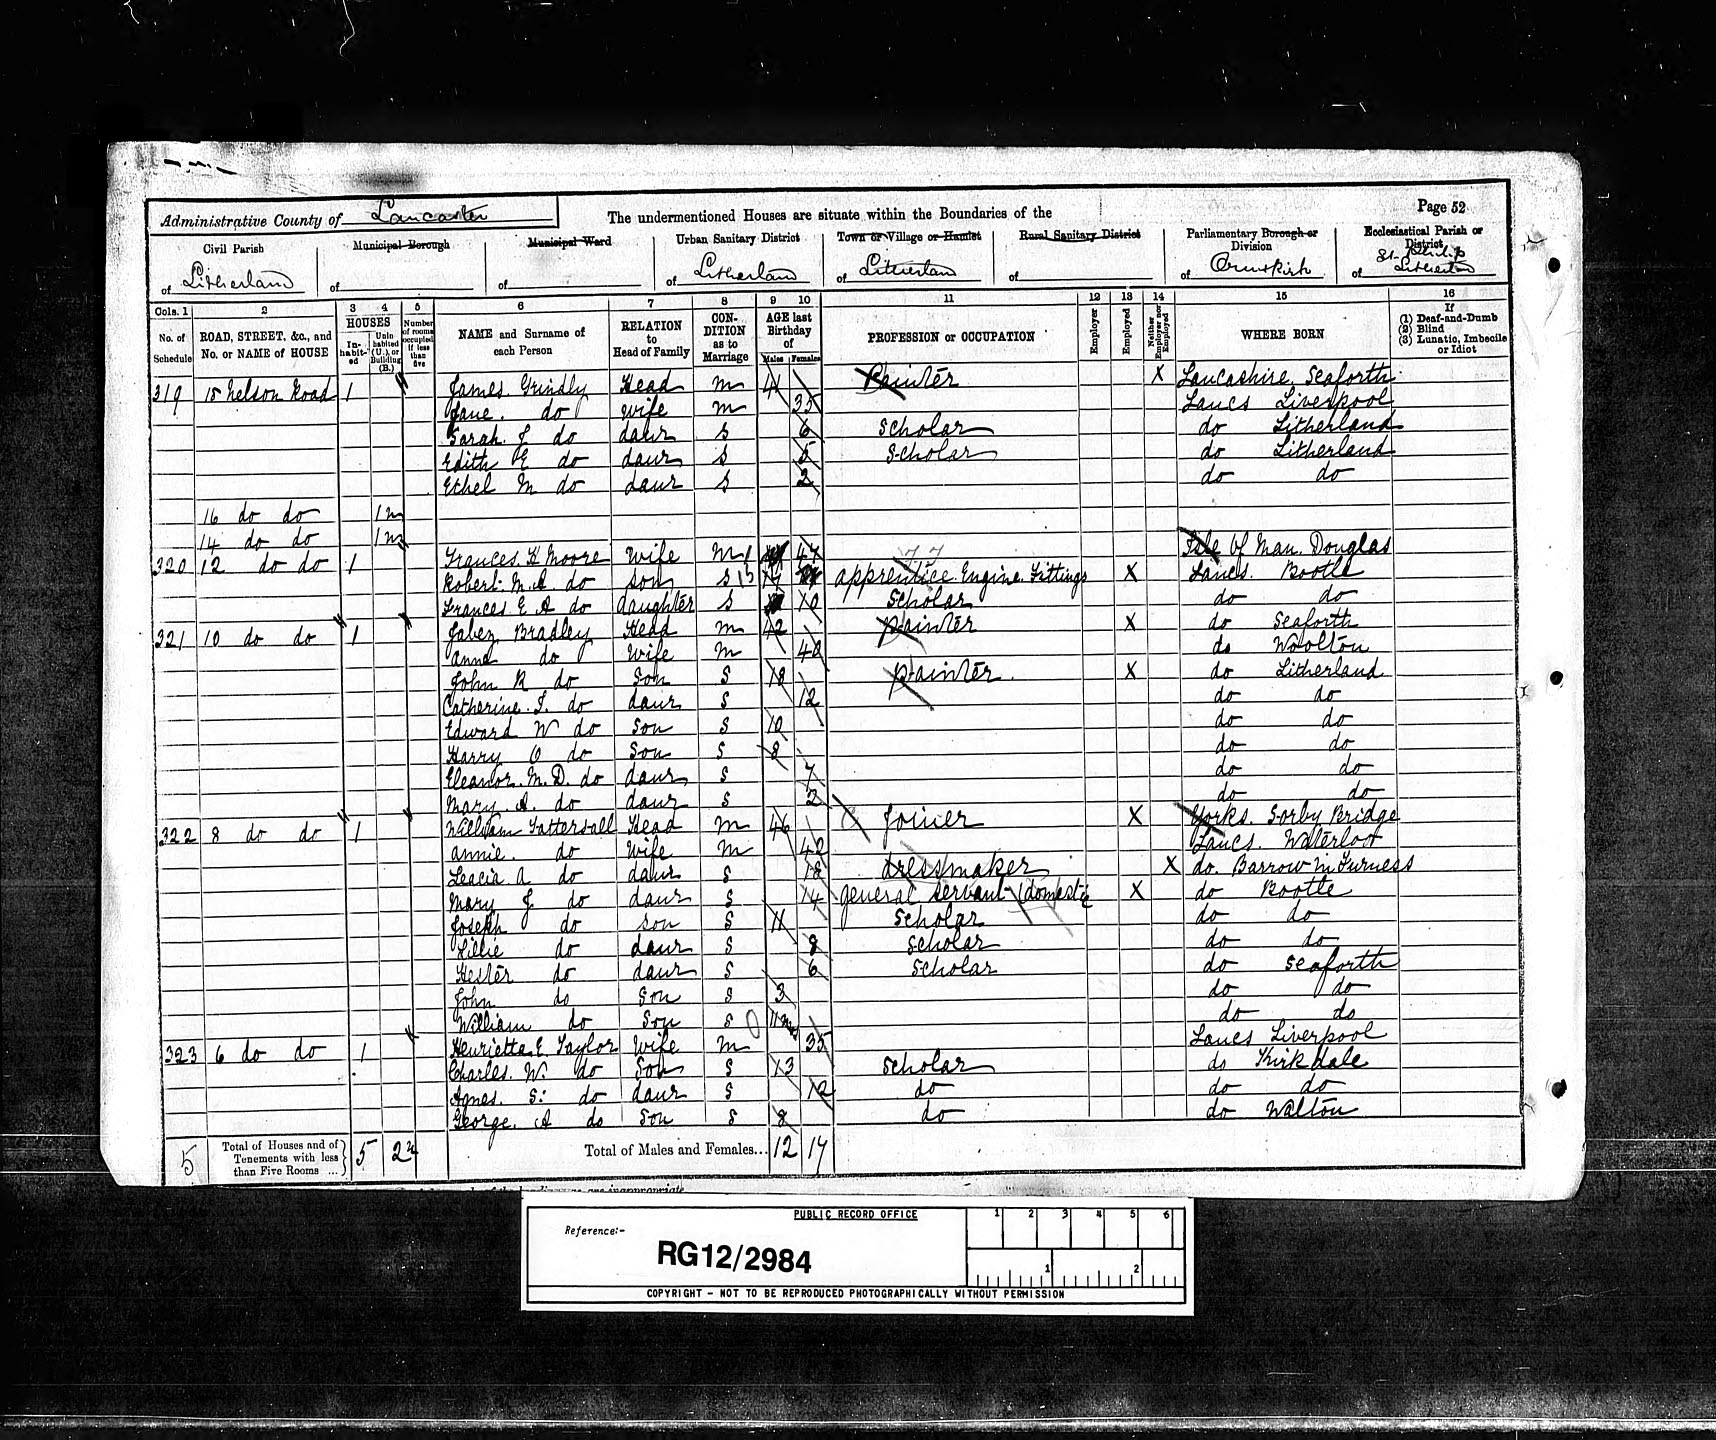 Administrative County of Lancaster
The undermentioned Houses are situate within the Boundaries of the
Page 52
Civil Parish of Litherland
Municipal Borough of
Municipal Ward of
Urban Sanitary District of Litherland
Town or Village or Hamlet of Litherland
Rural Sanitary District of
Parliamentary Borough or Division of Ormskirk
Ecclesiastical Parish or District of St. Philip Litherland
Cols. 1 2 3 4 5 6 7 8 9 10 11 12 13 14 15 16
No. of Schedule
ROAD, STREET, &c., and No. or NAME of HOUSE
HOUSES
In-habit-ed
Unin-habited (U.), or Building (B.)
Number of rooms occupied if less than five
NAME and Surname of each Person
RELATION to Head of Family
CON-DITION as to Marriage
AGE last Birthday of
Males Females
PROFESSION or OCCUPATION
Employer
Employed
Neither Employer nor Employed
WHERE BORN
If
(1) Deaf-and-Dumb
(2) Blind
(3) Lunatic, Imbecile or Idiot
319 18 Nelson Road 1 James Grindly Head M 41 Painter X Lancashire. Seaforth
Jane. do Wife M 35 Lancs Liverpool
Sarah. J do daur S 6 Scholar do Litherland
Edith E do daur S 5 Scholar do Litherland
Ethel M do daur S 2 do do
16 do do 1
14 do do 1
320 12 do do 1 Frances. K Moore Wife M 47 Isle of Man. Douglas
Robert. M. A do son S apprentice Engine Fittings X Lancs. Bootle
Frances E A do daughter S 10 Scholar do do
321 10 do do 1 Jabez Bradley Head M 42 painter X do Seaforth
Anne do Wife M 40 do Woolton
John R do Son S 18 painter. X do Litherland
Catherine. I. do daur S 12 do do
Edward W do Son S 10 do do
Harry O do Son S 8 do do
Eleanor. M. D. do daur S 7 do do
Mary. A. do daur S 2 do do
322 8 do do 1 William Tattersall Head M 46 Joiner X Yorks. Sorby Bridge
Annie. do Wife M 42 Lancs. Waterloo
Leacia A do daur S 18 dressmaker X do. Barrow in Furness
Mary J do daur S 14 general servant (domestic X do Bootle
Joseph do son S 11 Scholar do do
Lillie do daur S 8 Scholar do do
Hester do daur S 6 Scholar do Seaforth
John do Son S 3 do do
William do Son S 11 mos do do
323 6 do do 1 Henrietta E. Taylor Wife M 35 Lancs Liverpool
Charles. W. do Son S 13 Scholar do Kirkdale
Agnes. S: do daur S 12 do do do
George. A do Son S 8 do do Walton
5 Total of Houses and of Tenements with less than Five Rooms ... 5 2
Total of Males and Females... 12 17
PUBLIC RECORD OFFICE
Reference:-
RG12/2984
1 2 3 4 5 6
1 2
COPYRIGHT - NOT TO BE REPRODUCED PHOTOGRAPHICALLY WITHOUT PERMISSION